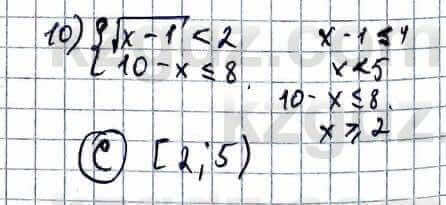 10) { √(x-1) < 2
10-x ≤ 8
x-1 ≤ 4
x < 5
10-x ≤ 8
x ≥ 2
C [2; 5)